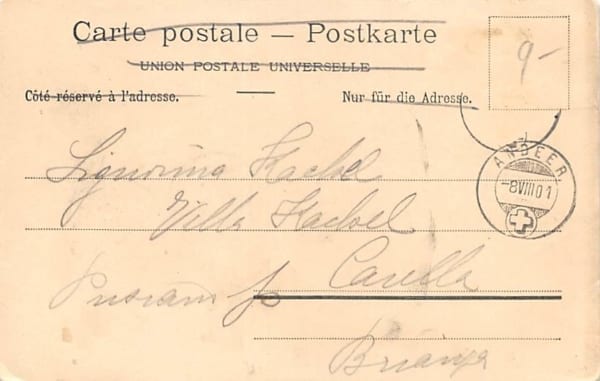 Carte postale — Postkarte
UNION POSTALE UNIVERSELLE
Côté réservé à l'adresse.
Nur für die Adresse.
9-
ANDEER.
-8VIII01
Signorina Haebel
Villa Haebel
Carella
Brianza